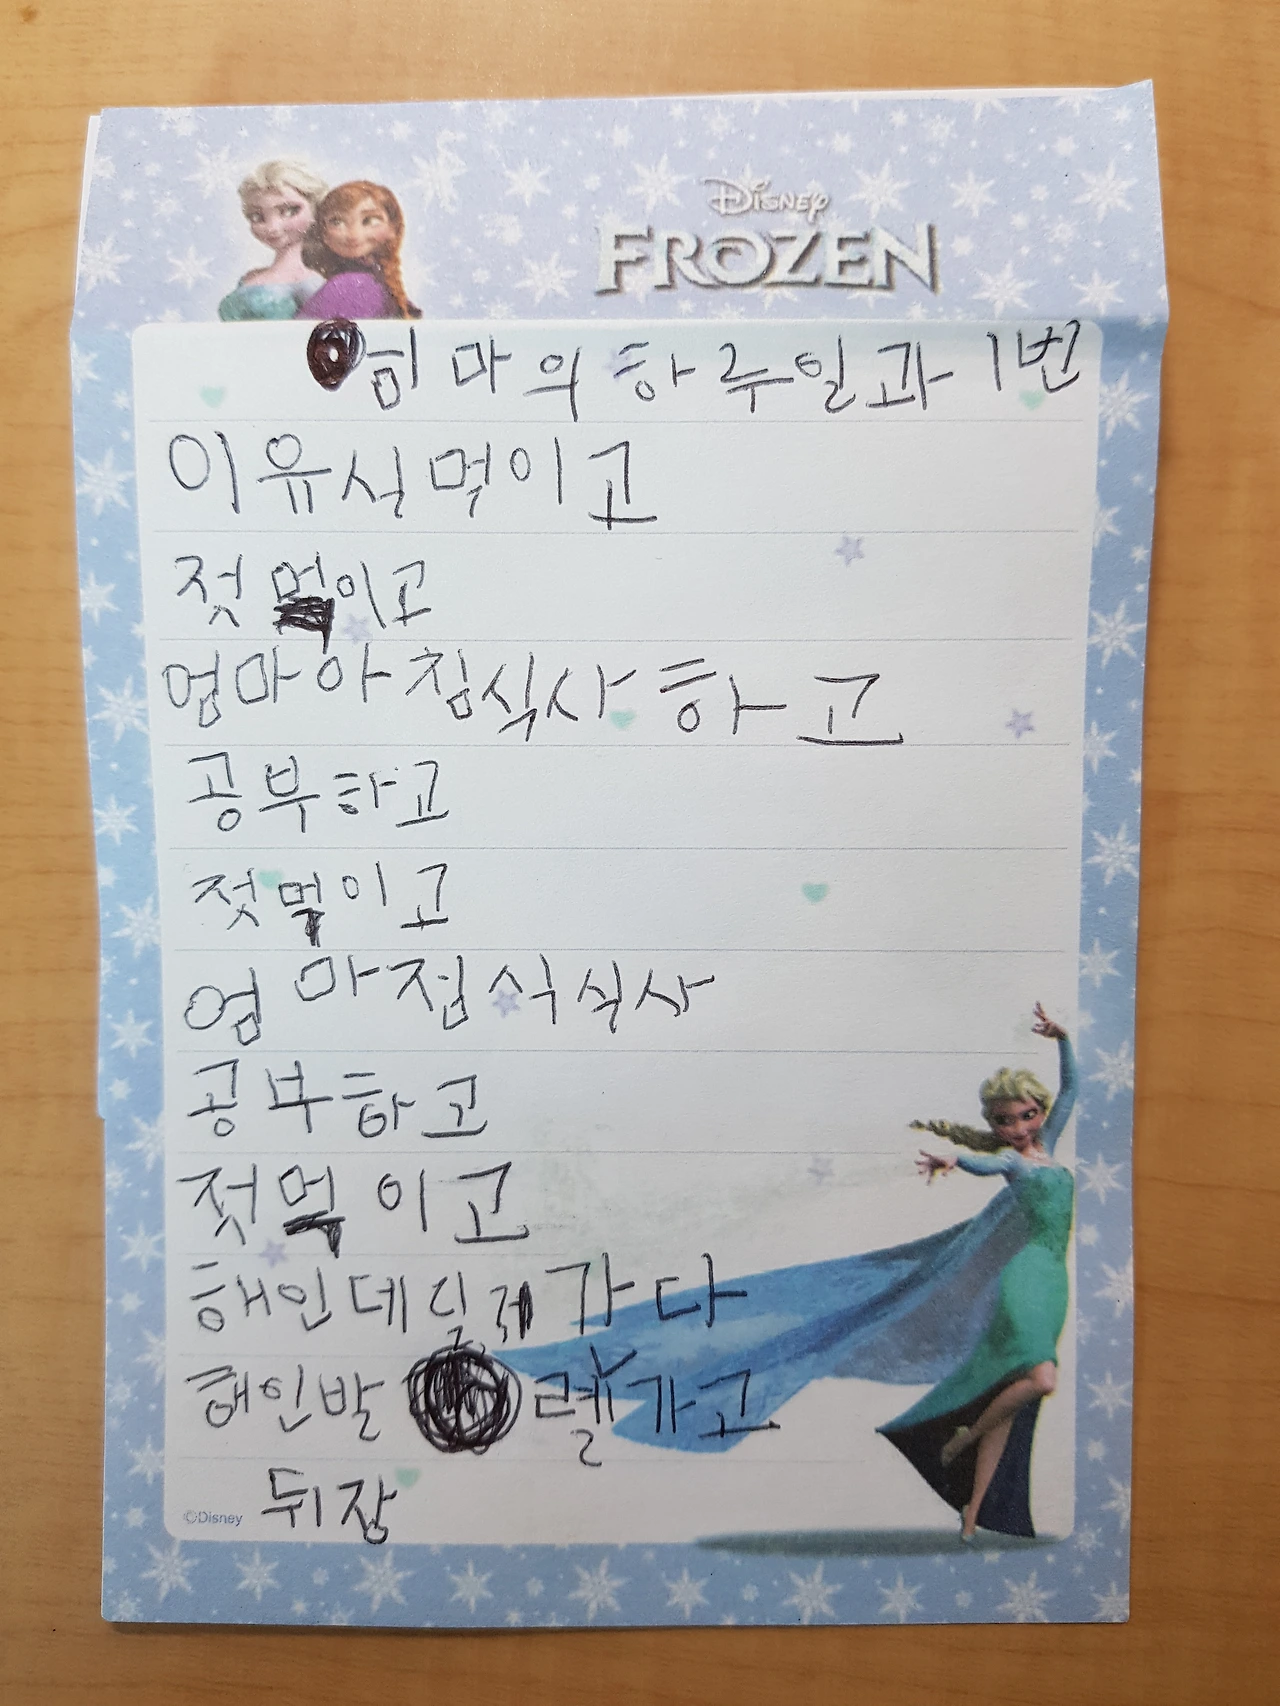 Disney
FROZEN
엄마의 하주일과 1번
이유식 먹이고
젖 먹이고
엄마 아침식사 하고
공부하고
젖 먹이고
엄마 점식식사
공부하고
젖 먹이고
해인데 가다
해인발 렐 가고
뒤장
©Disney